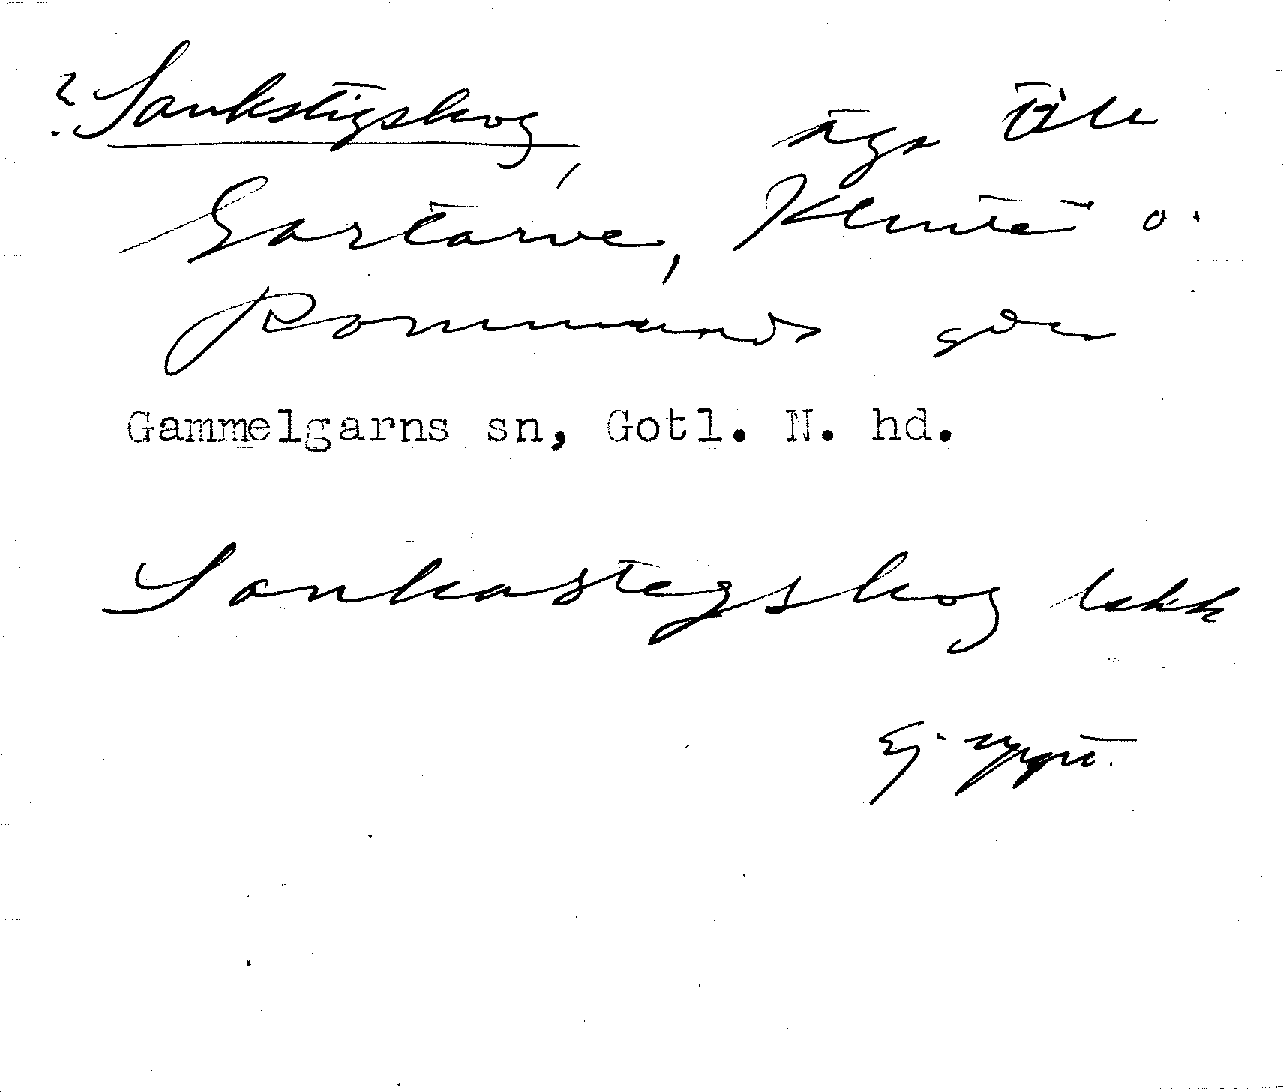 ? Sankstigskog, äga till
Gartarve, Klinte o.
Rommunds gdr
Gammelgarns sn, Gotl. N. hd.
Sankastegskog lskk
Ej uppt.